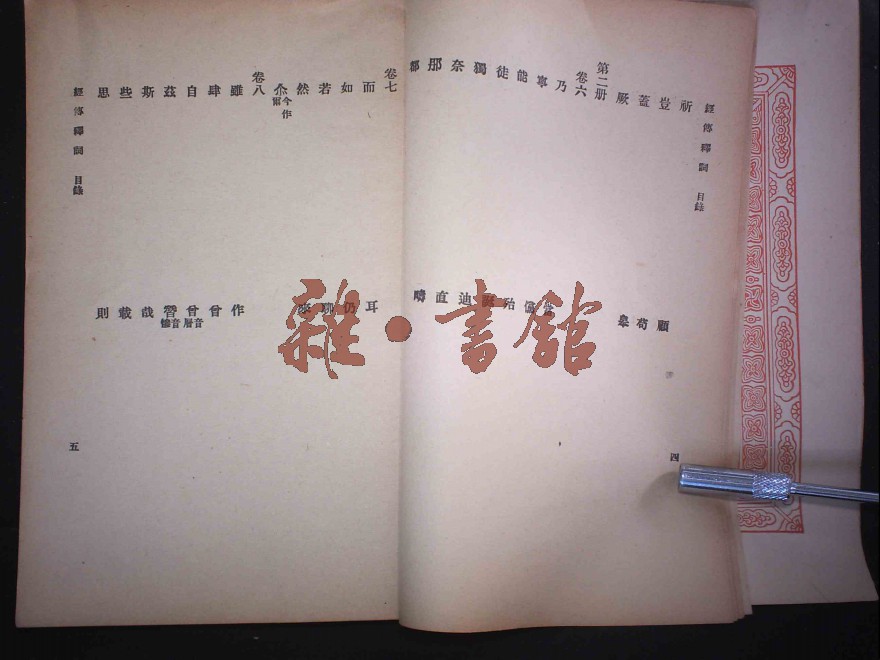 經傳釋詞 目錄
祈 豈 蓋 厥
顧 苟 皋
四
第二册
卷六
乃 寧 能 徒 獨 奈 那 都
當 儻 殆 誕 迪 直 疇
卷七
而 如 若 然 尒今作爾
耳 仍 聊 來
卷八
雖 肆 自 茲 斯 些 思
作 曾 曾音層 朁音憯 哉 載 則
經傳釋詞 目錄
五
雜·書館